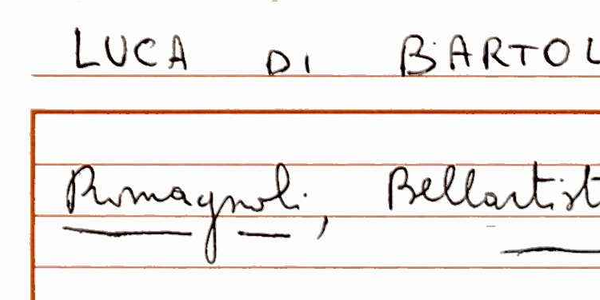 LUCA DI BARTOL
Romagnoli, Bellartist